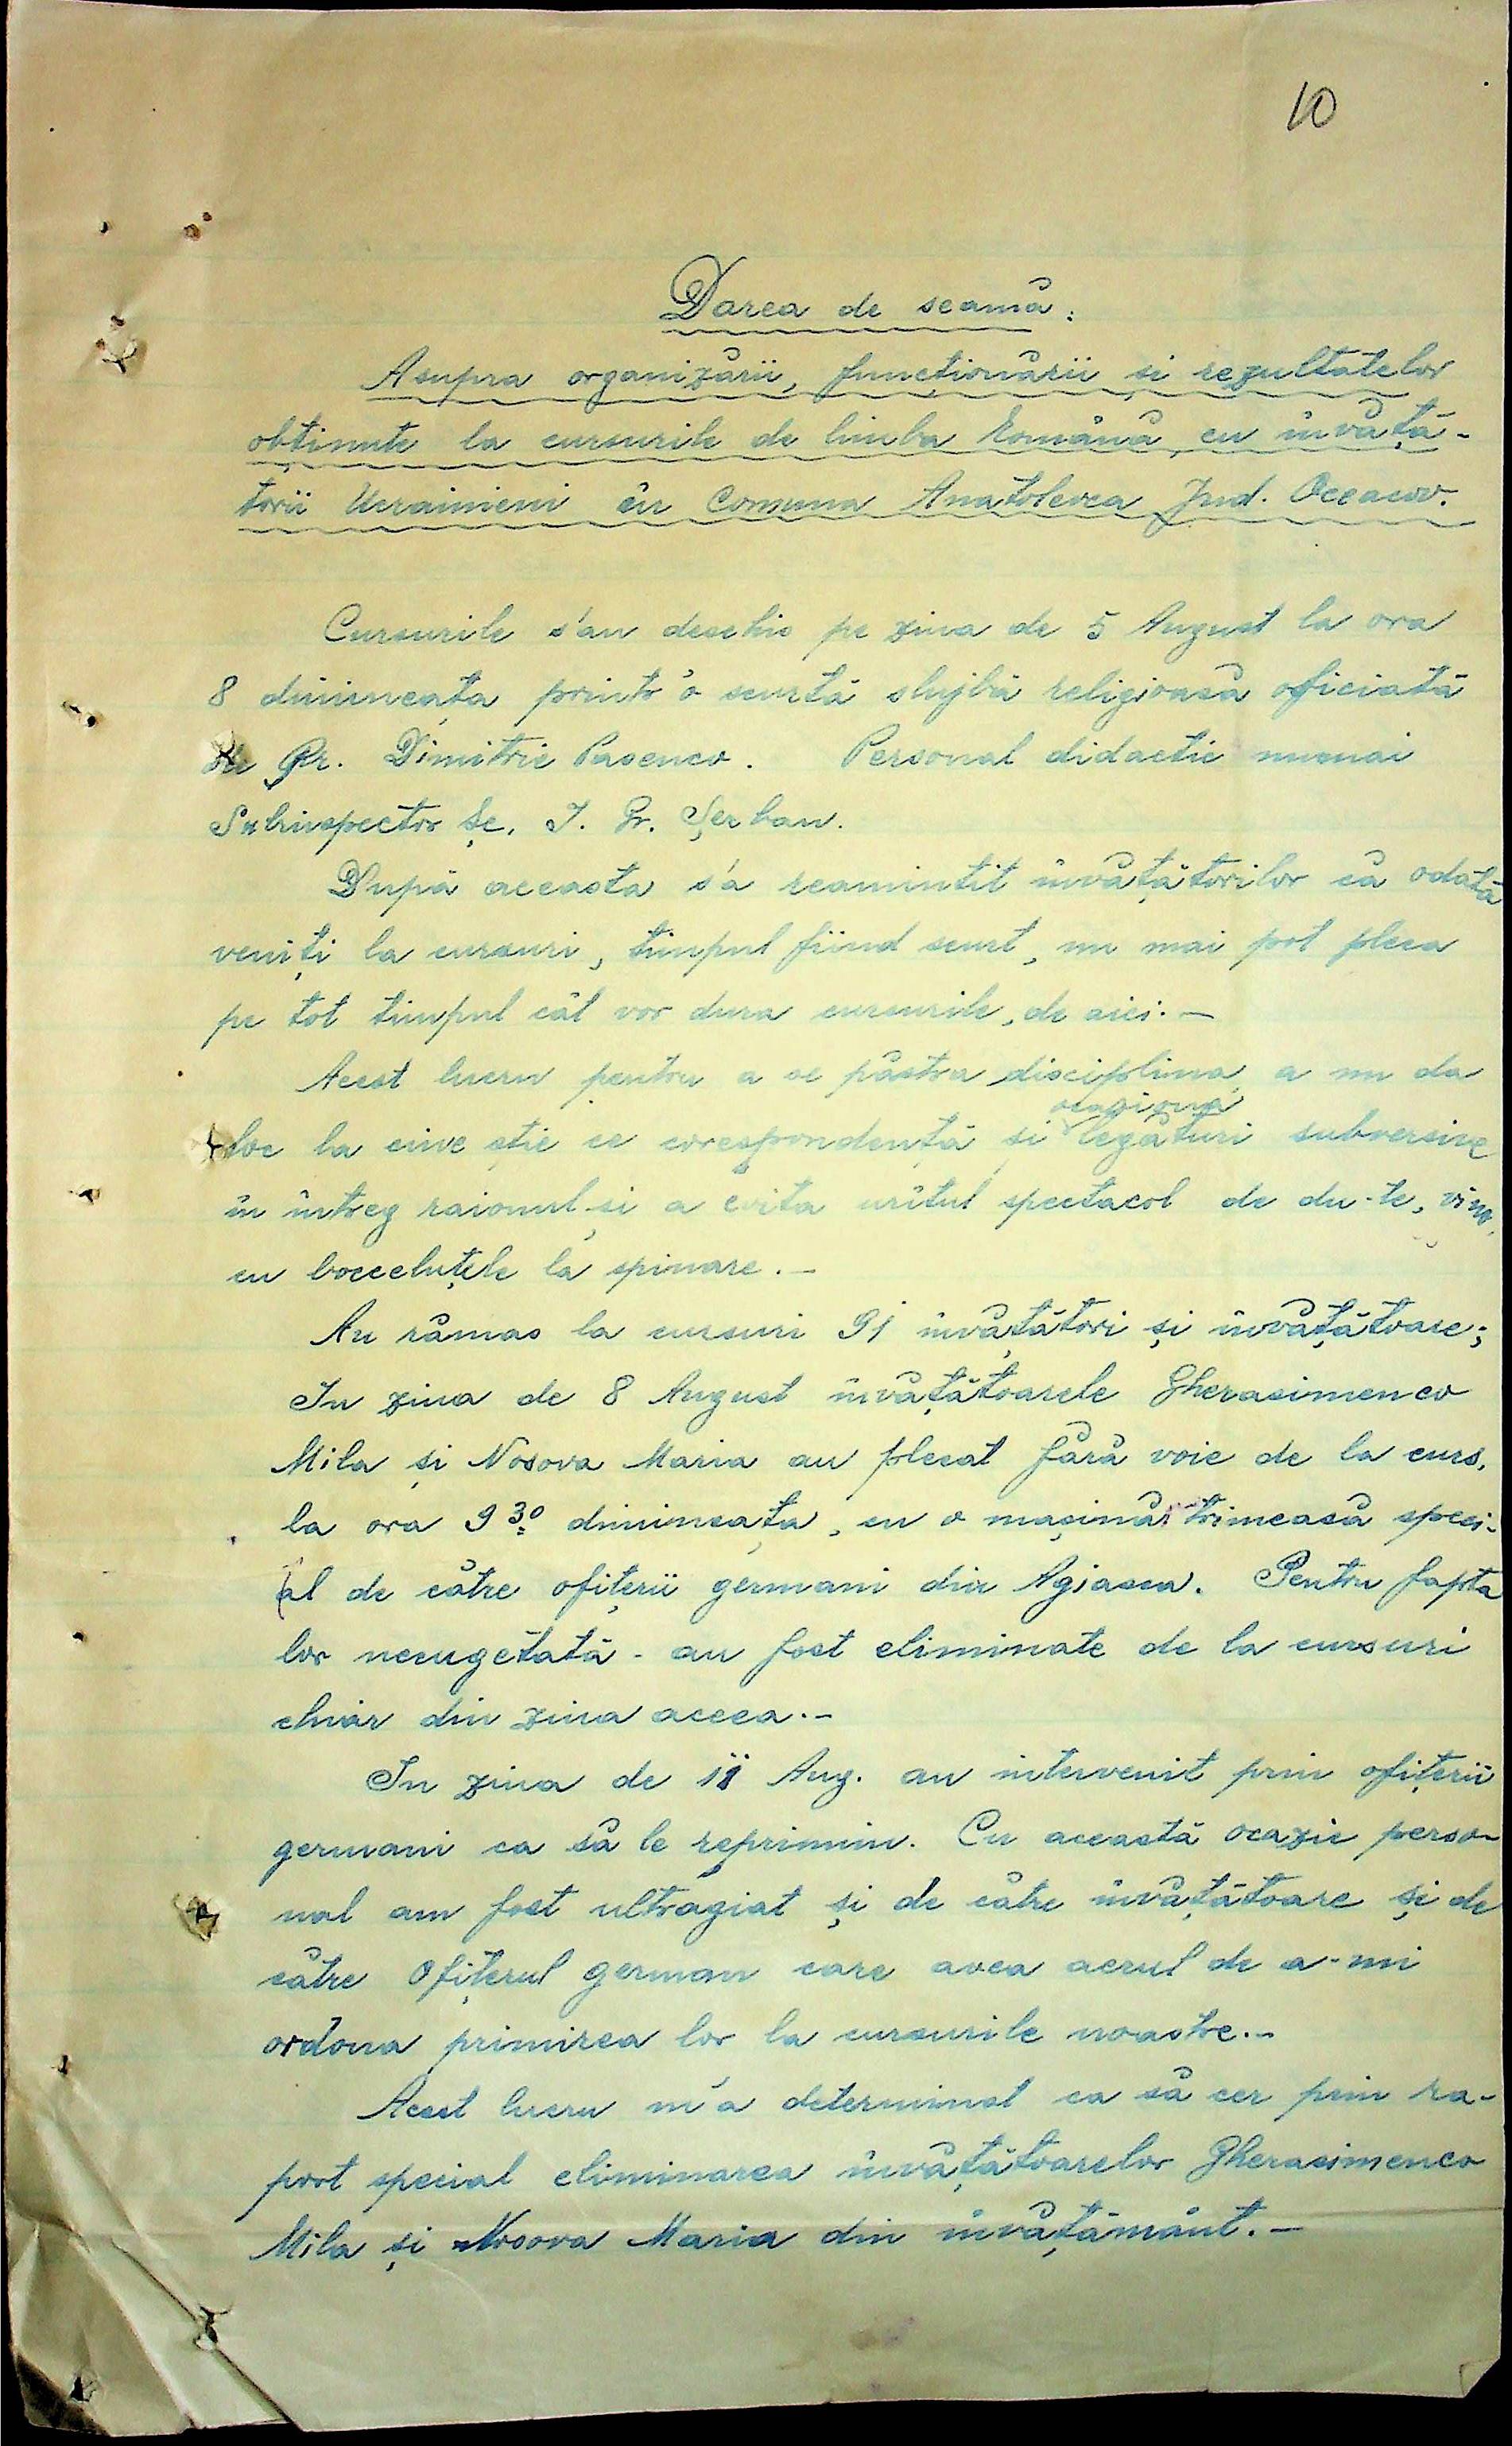 10
Darea de seamă:
Asupra organizării, funcționării și rezultatelor
obținute la cursurile de limba Română, cu învăță-
torii Ucrainieni în Comuna Anatolevca Jud. Oceacov.
Cursurile s'au deschis pe ziua de 5 August la ora
8 dimineața printr'o scurtă slujbă religioasă oficiată
de Pr. Dimitrie Pasenco. Personal didactic numai
Subinspector Șc. I. Gr. Șerban.
După aceasta s'a reamintit învățătorilor că odată
veniți la cursuri, timpul fiind scurt, nu mai pot pleca
pe tot timpul cât vor dura cursurile, de aici.-
Acest lucru pentru a se păstra disciplina, a nu da
ocaziona
loc la cine știe ce corespondență și legături subversive
în întreg raionul și a evita urîtul spectacol de du-te, vino,
cu boccelutele la spinare.-
Au rămas la cursuri 91 învățători și învățătoare;
In ziua de 8 August învățătoarele Gherasimenco
Mila și Nosova Maria au plecat fără voie de la curs,
la ora 9 30 dimineața, cu o mașină trimeasă speci-
al de către ofițerii germani din Agiasca. Pentru fapta
lor necugetată - au fost eliminate de la cursuri
chiar din ziua aceea.-
In ziua de 11 Aug. au intervenit prin ofițerii
germani ca să le reprimim. Cu această ocazie perso-
nal am fost ultragiat și de către învățătoare și de
către Ofițerul german care avea aerul de a-mi
ordona primirea lor la cursurile noastre.-
Acest lucru m'a determinat ca să cer prin ra-
port special eliminarea învățătoarelor Gherasimenco
Mila și Nosova Maria din învățământ.-